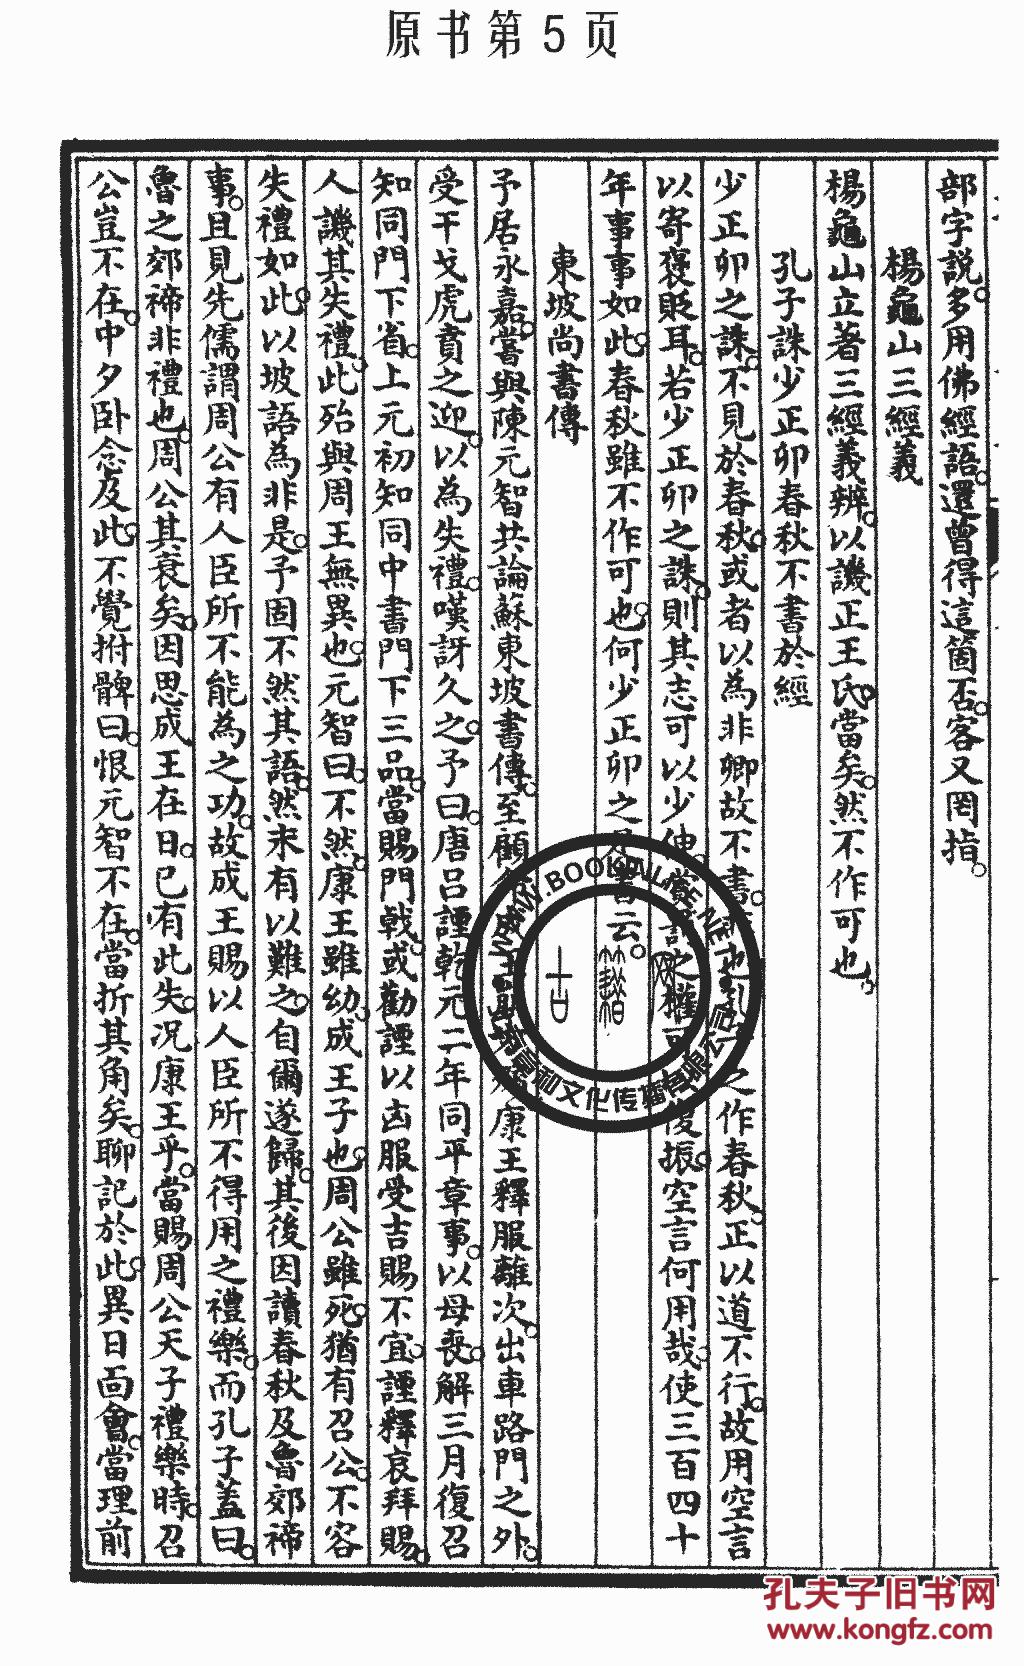 原书第5页
部字説多用佛經語還曾得這箇否客又罔措
楊龜山三經義
楊龜山立著三經義辨以譏正王氏當矣然不作可也
孔子誅少正卯春秋不書於經
少正卯之誅不見於春秋或者以為非卿故不書非也孔子之作春秋正以道不行故用空言
以寄褒貶耳若少正卯之誅則其志可以少伸賞罰之權可以復振空言何用哉使三百四十
年事事如此春秋雖不作可也何少正卯之書云
東坡尚書傳
予居永嘉嘗與陳元智共論蘇東坡書傳至顧命成王崩康王釋服離次出車路門之外
受干戈虎賁之迎以為失禮嘆訝久之予曰唐呂諲乾元二年同平章事以母喪解三月復召
知同門下省上元初知同中書門下三品當賜門戟或勸諲以凶服受吉賜不宜諲釋哀拜賜
人譏其失禮此殆與周王無異也元智曰不然康王雖幼成王子也周公雖死猶有召公不容
失禮如此以坡語為非是予固不然其語然未有以難之自爾遂歸其後因讀春秋及魯郊禘
事且見先儒謂周公有人臣所不能為之功故成王賜以人臣所不得用之禮樂而孔子蓋曰
魯之郊禘非禮也周公其衰矣因思成王在日已有此失况康王乎當賜周公天子禮樂時召
公豈不在中夕卧念及此不覺拊髀曰恨元智不在當折其角矣聊記於此異日面會當理前
WWW.BOOK
文化传播有限公司
孔夫子旧书网
www.kongfz.com